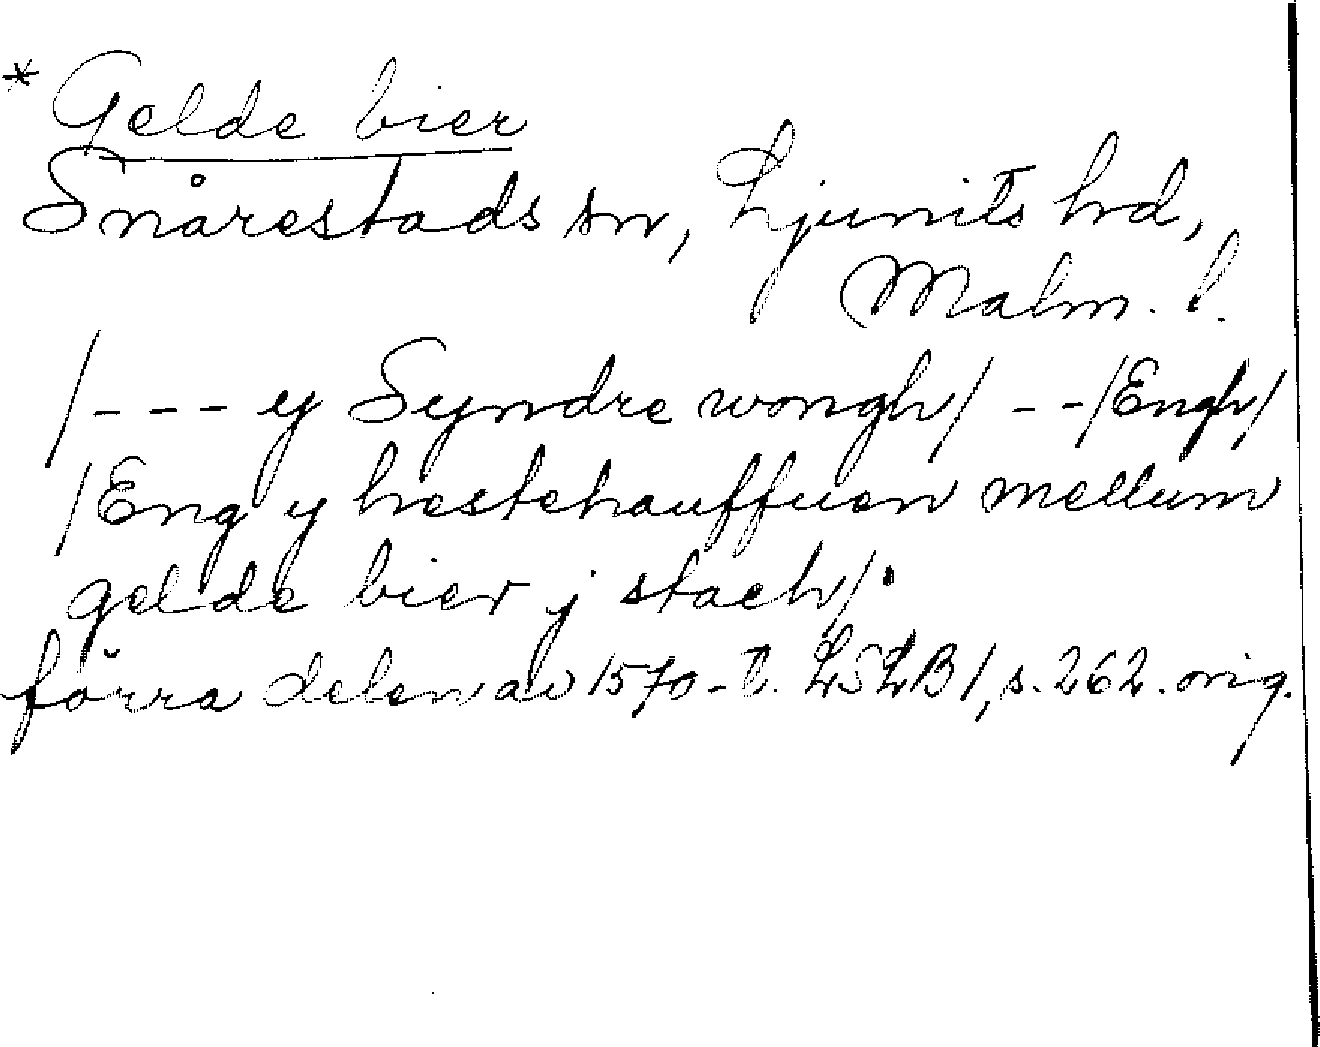 * Gelde bier
Snårestads sn, Ljunits hd,
Malm. l.
/--- y Syndre wongh/ --/Engh/
/Eng y hestehauffuen mellum
gelde bier j stach/.
förra delen av 1570-t. LSLB 1, s. 262. orig.